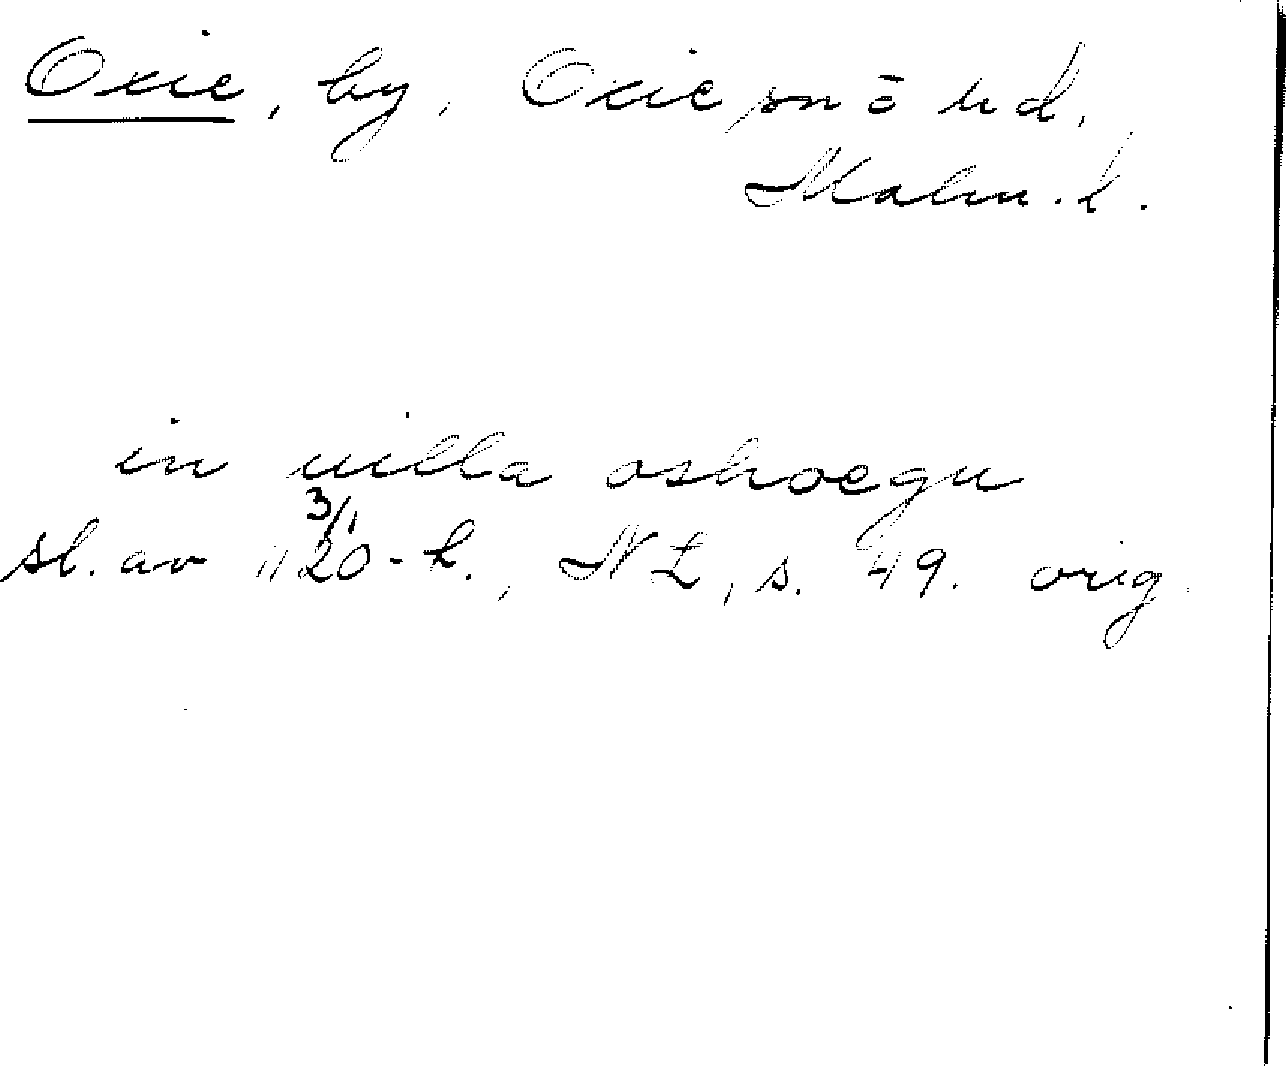 Oxie, by, Oxie sn o hd,
Malm. l.
in uilla oshoegu
3/1
sl. av 1120-t., NL, s. 49. orig.